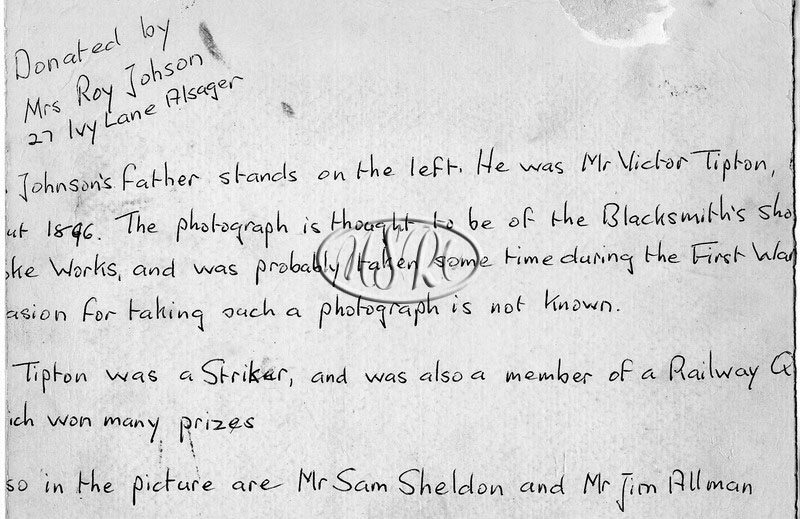 Donated by
Mrs Roy Johson
27 Ivy Lane Alsager
Johnson's father stands on the left. He was Mr Victor Tipton,
ut 1896. The photograph is thought to be of the Blacksmith's Sho
oke Works, and was probably taken some time during the First War
asion for taking such a photograph is not known.
Tipton was a Striker, and was also a member of a Railway
ich won many prizes
so in the picture are Mr Sam Sheldon and Mr Jim Allman